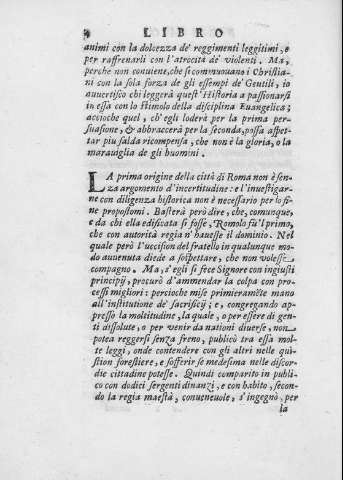 LIBRO
animi con la dolcezza de' reggimenti leggitimi, e
per raffrenarli con l'atrocità de' violenti. Ma,
perche non conuiene, che si commuouano i Christia-
ni con la sola forza de gli essempi de' Gentili, io
auuertisco chi leggerà quest' Historia a passionarsi
in essa con lo stimolo della disciplina Euangelica;
accioche quel, ch'egli loderà per la prima per-
suasione, & abbraccerà per la seconda, possa aspet-
tar piu salda ricompensa, che non è la gloria, o la
marauiglia de gli huomini.
LA prima origine della città di Roma non è sen-
za argomento d'incertitudine: e l'inuestigar-
ne con diligenza historica non è necessario per lo fi-
ne propostomi. Basterà però dire, che, comunque,
e da chi ella edificata si fosse, Romolo fù 'l primo,
che con autorità regia n'hauesse il dominio. Nel
quale però l'uccision del fratello in qualunque mo-
do auuenuta diede a sospettare, che non volesse
compagno. Ma, s'egli si fece Signore con ingiusti
principij, procurò d'ammendar la colpa con pro-
cessi migliori: percioche mise primieramẽte mano
all'institutione de' sacrificij; e, congregando ap-
presso la moltitudine, la quale, o per essere di gen-
ti dissolute, o per venir da nationi diuerse, non
potea reggersi senza freno, publicò tra essa mol-
te leggi, onde contendere con gli altri nelle qui-
stion forestiere, e sofferir se medesima nelle discor-
die cittadine potesse. Quindi comparito in publi-
co con dodici sergenti dinanzi, e con habito, secon-
do la regia maestà, conueneuole, s'ingegnò, per
la